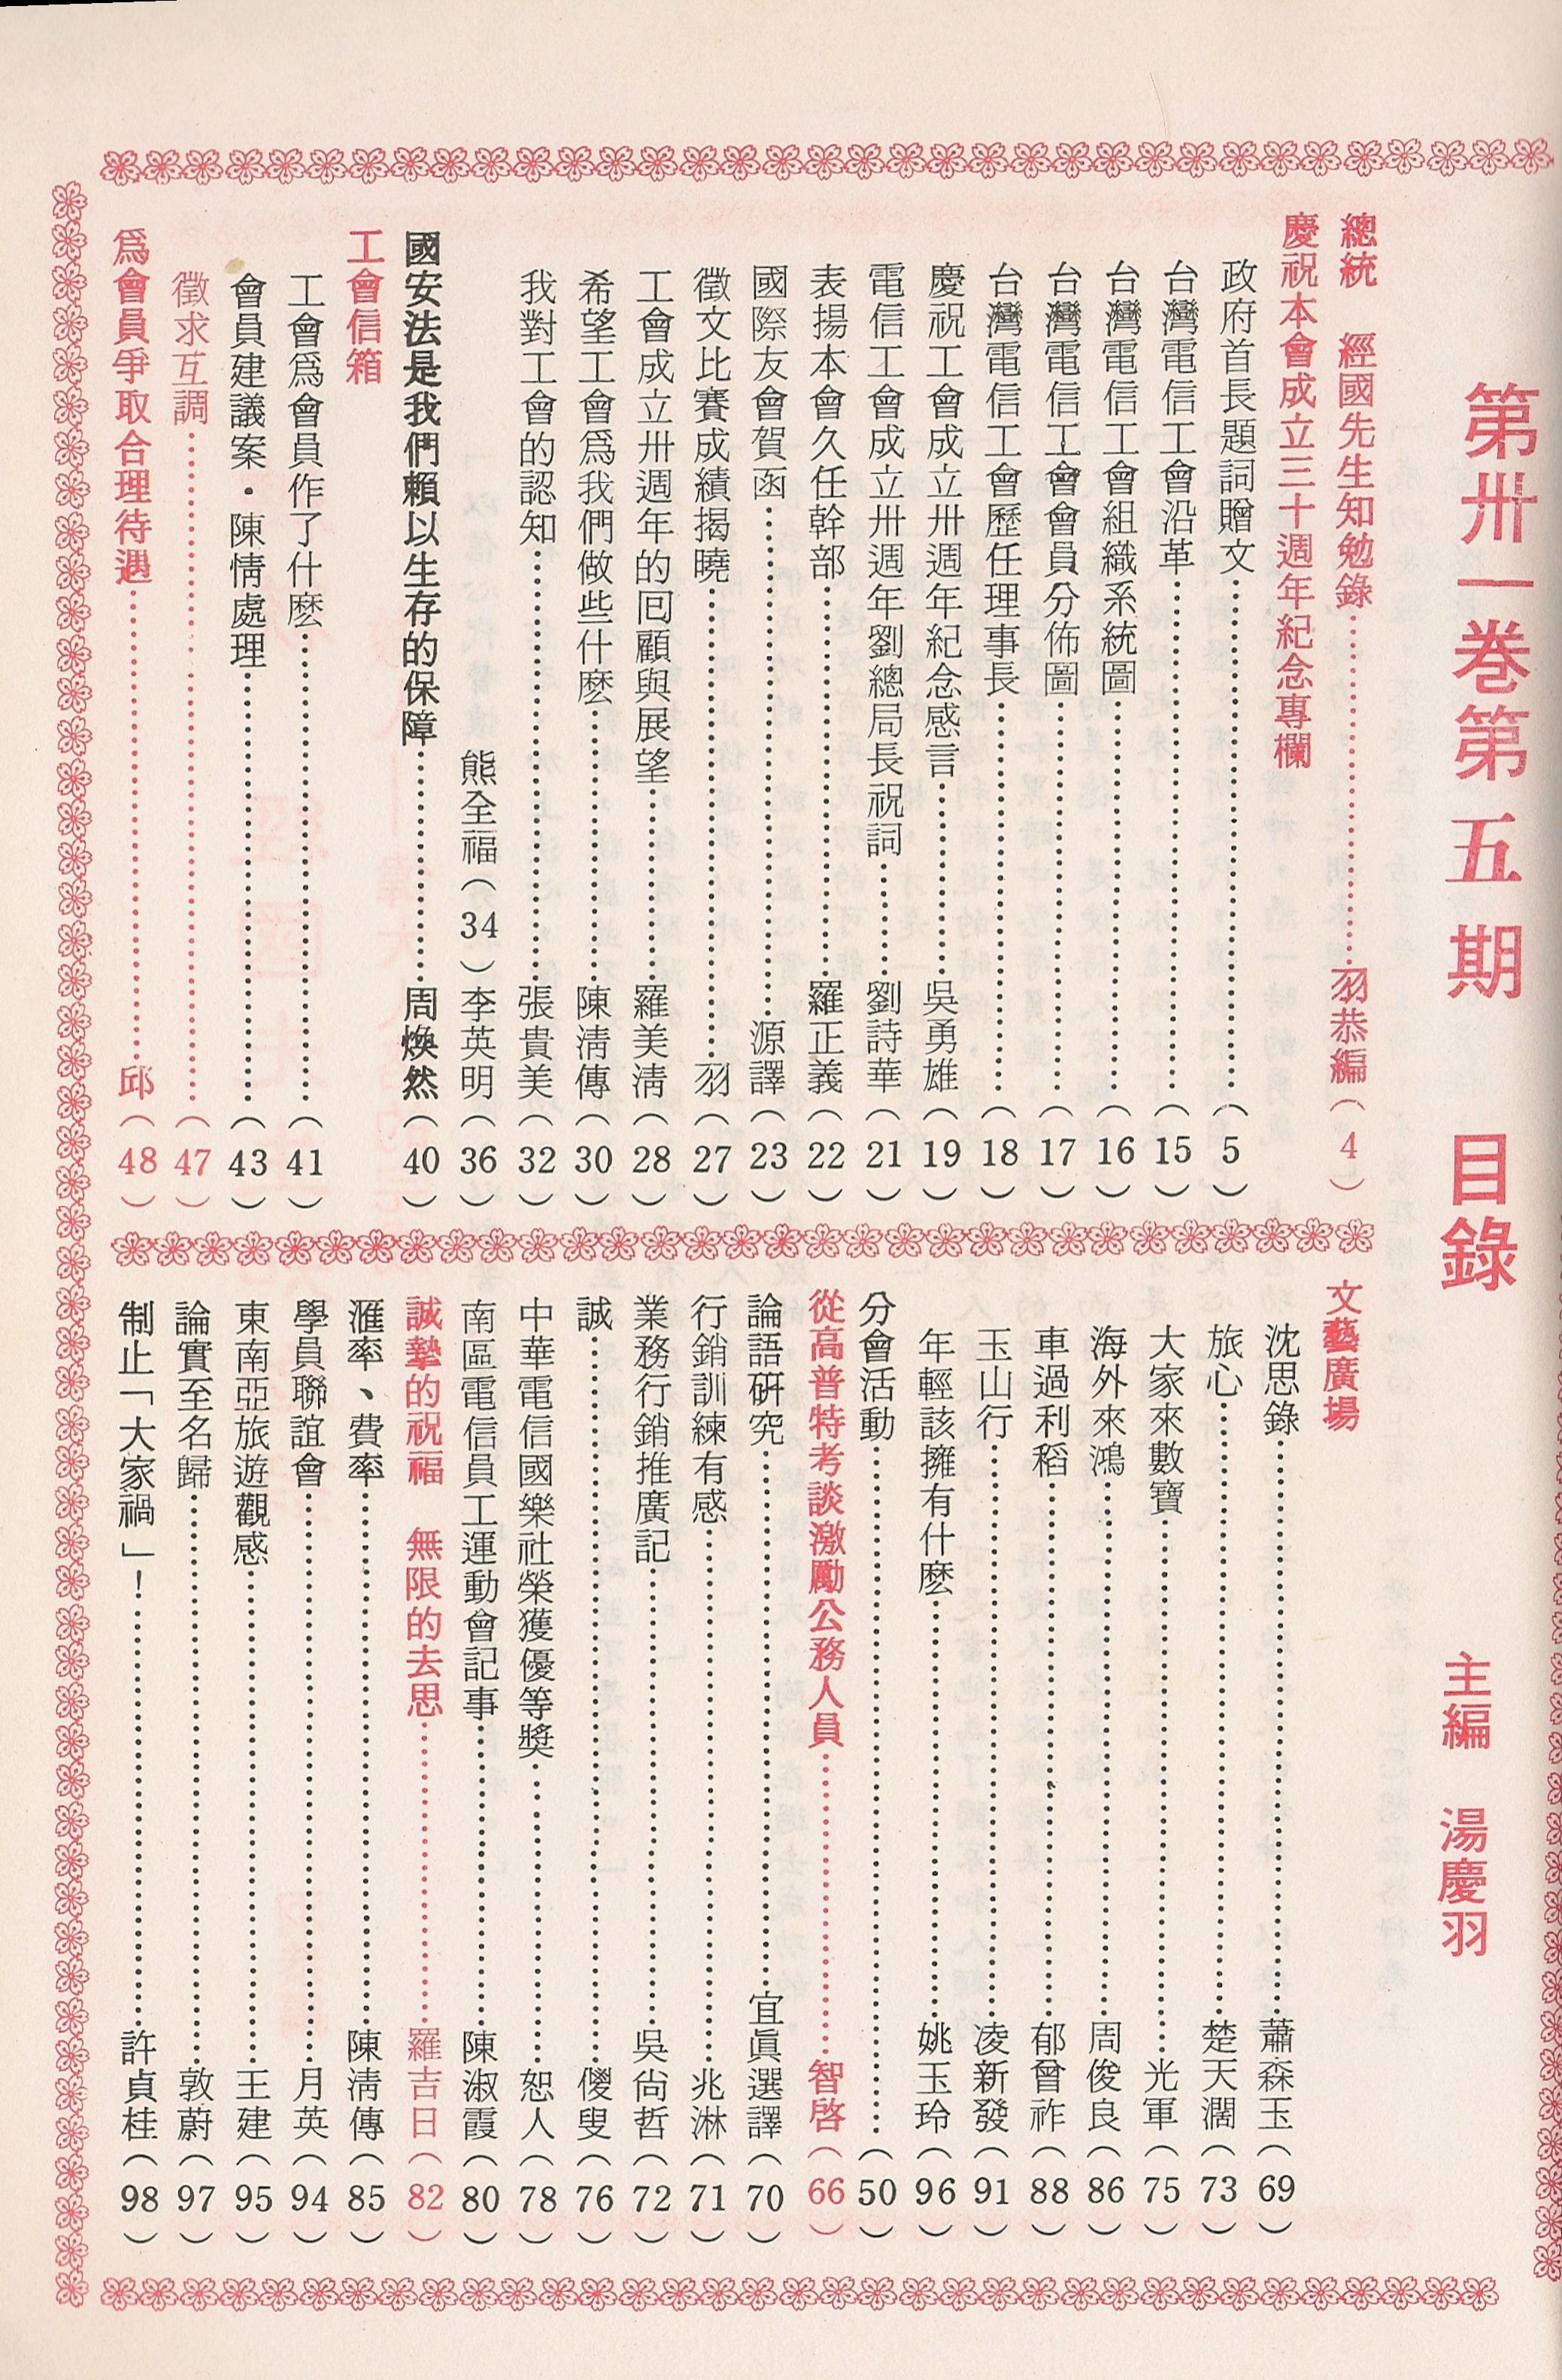 第卅一卷第五期　目錄　主編　湯慶羽
總統　經國先生知勉錄……羽恭編（4）
慶祝本會成立三十週年紀念專欄
政府首長題詞贈文……（5）
台灣電信工會沿革……（15）
台灣電信工會組織系統圖……（16）
台灣電信工會會員分佈圖……（17）
台灣電信工會歷任理事長……（18）
慶祝工會成立卅週年紀念感言……吳勇雄（19）
電信工會成立卅週年劉總局長祝詞……劉詩華（21）
表揚本會久任幹部……羅正義（22）
國際友會賀函……源譯（23）
徵文比賽成績揭曉……羽（27）
工會成立卅週年的回顧與展望……羅美淸（28）
希望工會爲我們做些什麽……陳淸傳（30）
我對工會的認知……張貴美（32）
熊全福（34）李英明（36）
國安法是我們賴以生存的保障……周煥然（40）
工會信箱
工會爲會員作了什麽……（41）
會員建議案・陳情處理……（43）
徵求互調……（47）
爲會員爭取合理待遇……邱（48）
文藝廣場
沈思錄……蕭森玉（69）
旅心……楚天濶（73）
大家來數寶……光軍（75）
海外來鴻……周俊良（86）
車過利稻……郁曾祚（88）
玉山行……凌新發（91）
年輕該擁有什麽……姚玉玲（96）
分會活動……（50）
從高普特考談激勵公務人員……智啓（66）
論語研究……宜眞選譯（70）
行銷訓練有感……兆淋（71）
業務行銷推廣記……吳尙哲（72）
誠……儍叟（76）
中華電信國樂社榮獲優等獎……恕人（78）
南區電信員工運動會記事……陳淑霞（80）
誠摯的祝福　無限的去思……羅吉日（82）
滙率、費率……陳淸傳（85）
學員聯誼會……月英（94）
東南亞旅遊觀感……王建（95）
論實至名歸……敦蔚（97）
制止「大家禍」！……許貞桂（98）